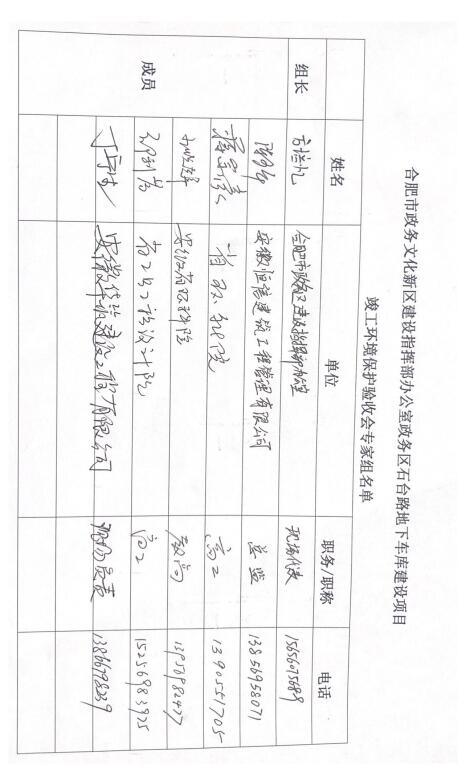 合肥市政务文化新区建设指挥部办公室政务区石台路地下车库建设项目
竣工环境保护验收会专家组名单
姓名 单位 职务/职称 电话
组长 合肥市政务区建设指挥部办公室 现场代表 15656075689
成员 安徽恒信建筑工程管理有限公司 总监 13856958071
省环科院 高工 1390551705
安徽省环科院 教高 13956982477
省工业设计院 高工 15256983925
安徽华设建设工程有限公司 现场负责 13866798239